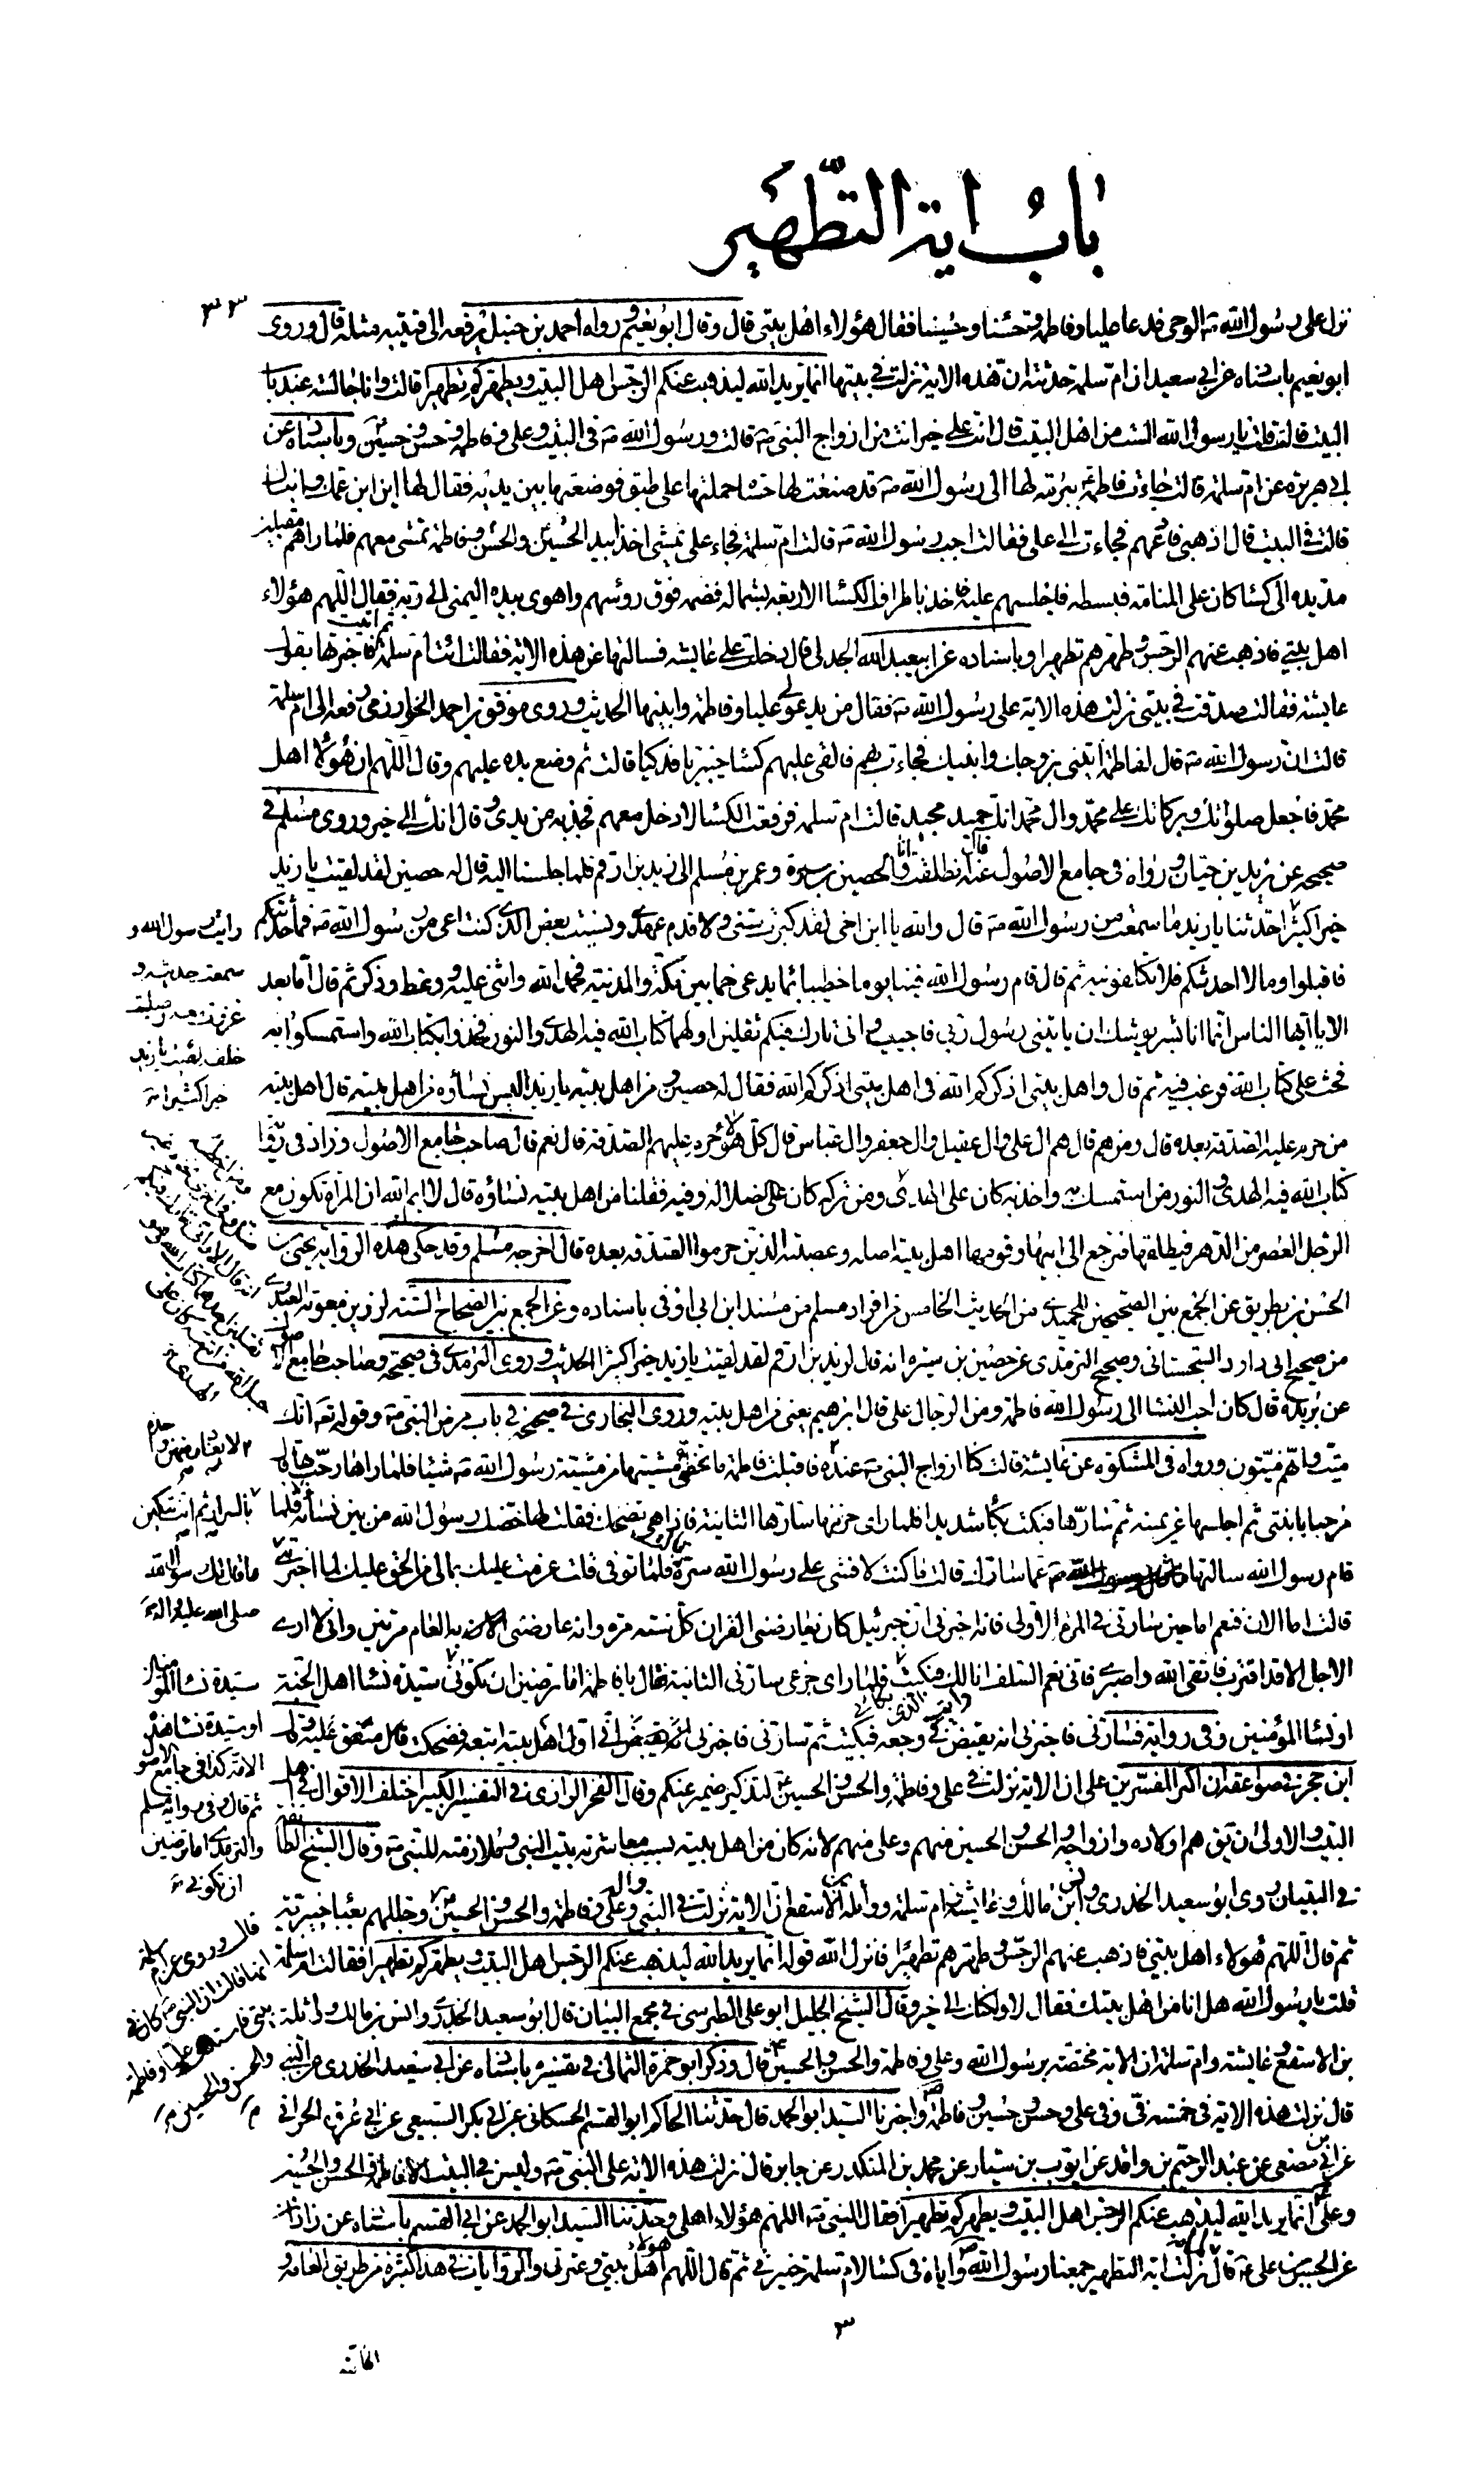 باب اية التطهير
٣٣
نزل على رسول الله ص الوحى فدعا عليا وفاطمة وحسنا وحسينا فقال هؤلاء اهل بيتى قال وقال ابو نعيم ورواه احمد بن حنبل يرفعه الى قتيبه مثله قال وروى
ابو نعيم باسناده عن ابى سعيد ان ام سلمة حدثته ان هذه الاية نزلت فى بيتها انما يريد الله ليذهب عنكم الرجس اهل البيت ويطهركم تطهيرا قالت وانا جالسة عند باب
البيت قالت قلت يا رسول الله الست من اهل البيت قال انت على خير انت من ازواج النبى ص قالت ورسول الله ص فى البيت وعلى وفاطمة وحسن وحسين وباسناده عن
ابى هريرة عن ام سلمة قالت جاءت فاطمة ببرمة لها الى رسول الله ص قد صنعت لها حملتها على طبق فوضعتها بين يديه فقال لها اين ابن عمك وابناك
قالت فى البيت قال اذهبى فادعيهم فجاءت الى على فقالت اجب رسول الله ص قالت ام سلمة فجاء على يمشى اخذا بيد الحسن والحسين وفاطمة تمشى معهم فلما راهم مقبلين
مد يده الى كسا كان على المنامة فبسطه فاجلسهم عليه فاخذ باطراف الكسا الاربعة بشماله فضمه فوق رؤسهم واهوى بيده اليمنى الى ربه فقال اللهم هؤلاء
اهل بيتى فاذهب عنهم الرجس وطهرهم تطهيرا وباسناده عن ابى عبد الله الجدلى قال دخلت على عايشه فسالتها عن هذه الاية فقالت ائت ام سلمة ثم اتيت فاخبرتها بقول
عايشه فقالت صدقت فى بيتى نزلت هذه الاية على رسول الله ص فقال من يدعو لى عليا وفاطمة وابنيها الحديث وروى موفق بن احمد الخوارزمى رفعه الى ام سلمة
قالت ان رسول الله ص قال لفاطمة ايتينى بزوجك وابنيك فجاءت بهم فالقى عليهم كسا خيبريا فدكيا قالت ثم وضع يده عليهم وقال اللهم ان هؤلاء اهل
محمد فاجعل صلواتك وبركاتك على محمد وال محمد انك حميد مجيد قالت ام سلمه فرفعت الكسا لادخل معهم فجذبه من يدى وقال انك الى خير وروى مسلم فى
صحيحه عن يزيد بن حيان ورواه فى جامع الاصول عنه قال انطلقت انا والحصين بن سبرة وعمر بن مسلم الى زيد بن ارقم فلما جلسنا اليه قال له حصين لقد لقيت يا زيد
خيرا كثيرا حدثنا يا زيد ما سمعت من رسول الله ص قال والله يا ابن اخى لقد كبرت سنى وقدم عهدى ونسيت بعض الذى كنت اعى من رسول الله ص فما احدثكم
فاقبلوا وما لا احدثكم فلا تكلفونيه ثم قال قام رسول الله فينا يوما خطيبا بما يدعى خما بين مكة والمدينة فحمد الله واثنى عليه ووعظ وذكر ثم قال اما بعد
الا يا ايها الناس انما انا بشر يوشك ان ياتينى رسول ربى فاجيب وانى تارك فيكم ثقلين اولهما كتاب الله فيه الهدى والنور فخذوا بكتاب الله واستمسكوا به
فحث على كتاب الله ورغب فيه ثم قال واهل بيتى اذكركم الله فى اهل بيتى اذكركم الله فقال له حصين ومن اهل بيته يا زيد اليس نساؤه من اهل بيته قال اهل بيته
من حرم عليه الصدقة بعده قال ومن هم قال هم ال على وال عقيل وال جعفر وال عباس قال كل هؤلاء حرم عليهم الصدقة قال نعم قال صاحب جامع الاصول وزاد فى رواية
كتاب الله فيه الهدى والنور من استمسك به واخذ به كان على الهدى ومن تركه كان على الضلالة وفيه فقلنا من اهل بيته نساؤه قال لا ايم الله ان المراة تكون مع
الرجل العصر من الدهر فيطلقها فترجع الى ابيها وقومها اهل بيته اصله وعصبته الذين حرموا الصدقة بعده قال اخرجه مسلم وقد حكى هذه الرواية يحيى بن
الحسن بن بطريق عن الجمع بين الصحيحين للحميدى من الحديث الخامس من افراد مسلم من مسند ابن ابى اوفى باسناده وعن الجمع بين الصحاح الستة لرزين بن معوية العبدرى
من صحيح ابى داود السجستانى وصحيح الترمذى عن حصين بن سبره انه قال لزيد بن ارقم لقد لقيت يا زيد خيرا كثيرا الحديث وروى الترمذى فى صحيحه وصاحب جامع الاصول
عن بريدة قال كان احب النسا الى رسول الله فاطمة ومن الرجال على قال ابرهيم يعنى من اهل بيته وروى البخارى فى صحيحه فى باب مرض النبى ص وقوله تعه انك
ميت وانهم ميتون ورواه فى المشكوه عن عايشة قالت كنا ازواج النبى ص عنده فاقبلت فاطمة ما تخفى مشيتها من مشية رسول الله ص شيئا فلما راها رحب بها قال
مرحبا بابنتى ثم اجلسها عن يمينه ثم سارها فبكت بكاء شديدا فلما راى حزنها سارها الثانية فاذا هى تضحك فقلت لها خصك رسول الله من بين نسائه فلما
قام رسول الله سالتها عما سارك قالت ما كنت لافشى على رسول الله سره فلما توفى قلت عزمت عليك بمالى من الحق عليك لما اخبرتنى
قالت اما الان فنعم اما حين سارنى فى المرة الاولى فانه اخبرنى ان جبرئيل كان يعارضنى القران كل سنة مرة وانه عارضنى به العام مرتين وانى لا ارى
الاجل الا قد اقترب فاتقى الله واصبرى فانى نعم السلف انا لك فبكيت فلما راى جزعى سارنى الثانية فقال يا فاطمة اما ترضين ان تكونى سيدة نسا اهل الجنة
او نسا المؤمنين وفى رواية فسارنى فاخبرنى انه يقبض فى وجعه فبكيت ثم سارنى فاخبرنى انى اول اهل بيته اتبعه فضحكت قال متفق عليه وقال
ابن حجر فى صواعقه ان اكثر المفسرين على ان الاية نزلت فى على وفاطمة والحسن والحسين لتذكير ضمير عنكم وقال الفخر الرازى فى التفسير الكبير اختلف الاقوال فى اهل
البيت والاولى ان يق هم اولاده وازواجه والحسن والحسين منهم وعلى منهم لانه كان من اهل بيته بسبب معاشرته بيت النبى وملازمته للنبى ص وقال الشيخ الطائفة
فى التبيان روى ابو سعيد الخدرى وانس بن مالك وعايشة وام سلمة وواثلة بن الاسقع ان الاية نزلت فى النبى وعلى وفاطمة والحسن والحسين وجللهم بعباء خيبرية
ثم قال اللهم هؤلاء اهل بيتى فاذهب عنهم الرجس وطهرهم تطهيرا فانزل الله قوله انما يريد الله ليذهب عنكم الرجس اهل البيت ويطهركم تطهيرا فقالت ام سلمة
قلت يا رسول الله هل انا من اهل بيتك فقال لا ولكنك الى خير وقال الشيخ الجليل ابو على الطبرسى فى مجمع البيان قال ابو سعيد الخدرى وانس بن مالك وواثلة
بن الاسقع وعايشة وام سلمة ان الاية مختصة برسول الله وعلى وفاطمة والحسن والحسين قال وذكر ابو حمزة الثمالى فى تفسيره باسناده عن ابى سعيد الخدرى عن النبى
قال نزلت هذه الاية فى خمسة فى وفى على وحسن وحسين وفاطمة واخبرنا السيد ابو الحمد قال حدثنا الحاكم ابو القسم الحسكانى عن ابى بكر السبيعى عن ابى عروة الحرانى
عن ابن مصفى عن عبد الرحيم بن واقد عن ايوب بن سيار عن محمد بن المنكدر عن جابر قال نزلت هذه الاية على النبى ص وليس فى البيت الا فاطمة والحسن والحسين
وعلى انما يريد الله ليذهب عنكم الرجس اهل البيت ويطهركم تطهيرا فقال النبى ص اللهم هؤلاء اهلى وحدثنا السيد ابو الحمد عن ابى القسم باسناده عن زاذان
عن الحسن بن على ع قال لما نزلت اية التطهير جمعنا رسول الله ص واياه فى كسا لام سلمة خيبرى ثم قال اللهم هؤلاء اهل بيتى وعترتى والروايات فى هذا كثيرة من طريق العامة و
رايت رسول الله و
سمعت حديثه و
غزوت معه وصليت
خلفه لقد لقيت يا زيد
خيرا كثيرا
بالسر ثم انت تبكين
ما قال لك رسول الله
صلى الله عليه واله
سيدة نسا المؤمنين
او سيدة نسا هذه
الامة كذا فى جامع الاصول
ثم قال وفى رواية مسلم
والترمذى اما ترضين
ان تكونى
قال وروى عن ام سلمة
انها قالت ان النبى ص كان فى
بيتى
والحسن والحسين
٣
الخاصة